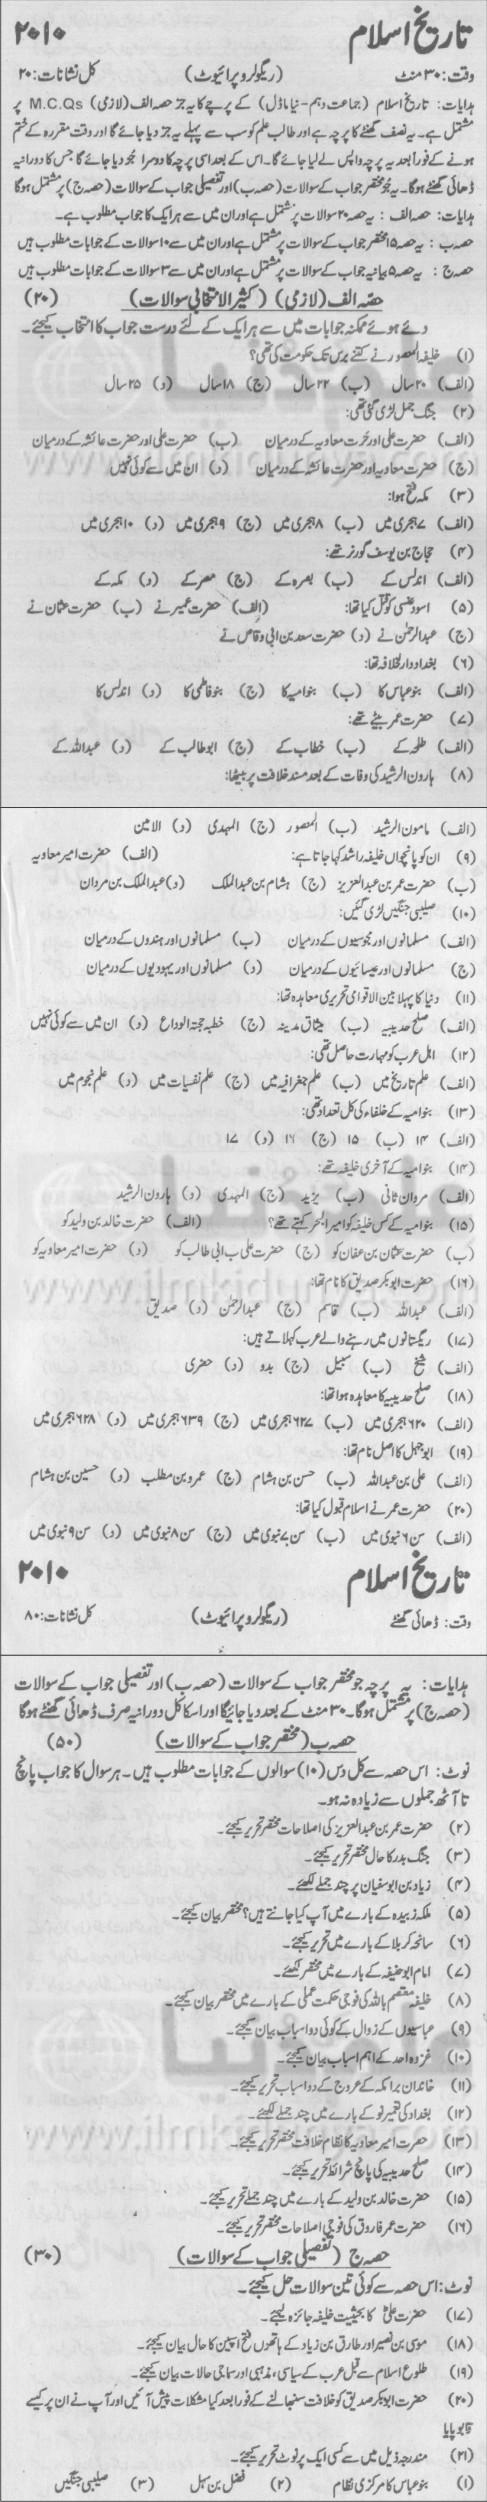 تاریخ اسلام ۲۰۱۰
وقت: ۳۰ منٹ (ریگولر و پرائیوٹ) کل نشانات: ۲۰
ہدایات: تاریخ اسلام (جماعت دہم - نیا ماڈل) کے پرچے کا یہ جز حصہ الف (لازمی) M.C.Qs پر
مشتمل ہے۔ یہ نصف گھنٹے کا پرچہ ہے اور طالب علم کو سب سے پہلے یہ جز دیا جائے گا اور وقت مقررہ کے ختم
ہونے کے فوراً بعد یہ پرچہ واپس لے لیا جائے گا۔ اس کے بعد اسی پرچہ کا دوسرا جُز دیا جائے گا جس کا دورانیہ
ڈھائی گھنٹے ہوگا۔ یہ جُز مختصر جواب کے سوالات (حصہ ب) اور تفصیلی جواب کے سوالات (حصہ ج) پر مشتمل ہوگا
ہدایات: حصہ الف: یہ حصہ ۲۰ سوالات پر مشتمل ہے اور ان میں سے ہر ایک کا جواب مطلوب ہے۔
حصہ ب: یہ حصہ ۱۵ مختصر جواب کے سوالات پر مشتمل ہے اور ان میں سے ۱۰ سوالات کے جوابات مطلوب ہیں
حصہ ج: یہ حصہ ۵ بیانیہ جواب کے سوالات پر مشتمل ہے اور ان میں سے ۳ سوالات کے جوابات مطلوب ہیں
حصہ الف (لازمی) (کثیر الانتخابی سوالات) (۲۰)
دئے ہوئے ممکنہ جوابات میں سے ہر ایک کے لئے درست جواب کا انتخاب کیجئے۔
(۱) خلیفہ المنصور نے کتنے برس تک حکومت کی تھی؟
(الف) ۲۰ سال (ب) ۲۲ سال (ج) ۱۸ سال (د) ۲۵ سال
(۲) جنگ جمل لڑی گئی تھی:
(الف) حضرت علی اور حضرت معاویہ کے درمیان (ب) حضرت علی اور حضرت عائشہ کے درمیان
(ج) حضرت معاویہ اور حضرت عائشہ کے درمیان (د) ان میں سے کوئی نہیں
(۳) مکہ فتح ہوا:
(الف) ۷ ہجری میں (ب) ۸ ہجری میں (ج) ۹ ہجری میں (د) ۱۰ ہجری میں
(۴) حجاج بن یوسف گورنر تھے:
(الف) اندلس کے (ب) بصرہ کے (ج) مصر کے (د) مکہ کے
(۵) اسود عنسی کو قتل کیا تھا: (الف) حضرت عمیر نے (ب) حضرت عثمان نے
(ج) عبدالرحمٰن نے (د) حضرت سعد بن ابی وقاص نے
(۶) بغداد دارالخلافہ تھا:
(الف) بنو عباس کا (ب) بنو امیہ کا (ج) بنو فاطمی کا (د) اندلس کا
(۷) حضرت عمر بیٹے تھے:
(الف) طلحہ کے (ب) خطاب کے (ج) ابو طالب کے (د) عبداللہ کے
(۸) ہارون الرشید کی وفات کے بعد مسند خلافت پر بیٹھا:
(الف) مامون الرشید (ب) المنصور (ج) المہدی (د) الامین
(۹) ان کو پانچواں خلیفہ راشد کہا جاتا ہے: (الف) حضرت امیر معاویہ
(ب) حضرت عمر بن عبدالعزیز (ج) ہشام بن عبدالملک (د) عبدالملک بن مردان
(۱۰) صلیبی جنگیں لڑی گئیں:
(الف) مسلمانوں اور مجوسیوں کے درمیان (ب) مسلمانوں اور ہندوں کے درمیان
(ج) مسلمانوں اور عیسائیوں کے درمیان (د) مسلمانوں اور یہودیوں کے درمیان
(۱۱) دنیا کا پہلا بین الاقوامی تحریری معاہدہ تھا:
(الف) صلح حدیبیہ (ب) میثاق مدینہ (ج) خطبہ حجۃ الوداع (د) ان میں سے کوئی نہیں
(۱۲) اہل عرب کو مہارت حاصل تھی:
(الف) علم تاریخ میں (ب) علم جغرافیہ میں (ج) علم نفسیات میں (د) علم نجوم میں
(۱۳) بنو امیہ کے خلفاء کی کل تعداد تھی:
(الف) ۱۴ (ب) ۱۵ (ج) ۱۶ (د) ۱۷
(۱۴) بنو امیہ کے آخری خلیفہ تھے:
(الف) مروان ثانی (ب) یزید (ج) المہدی (د) ہارون الرشید
(۱۵) بنو امیہ کے کس خلیفہ کو امیر البحر کہتے تھے؟ (الف) حضرت خالد بن ولید کو
(ب) حضرت عثمان بن عفان کو (ج) حضرت علی ب ابی طالب کو (د) حضرت امیر معاویہ کو
(۱۶) حضرت ابوبکر صدیق کا نام تھا:
(الف) عبداللہ (ب) قاسم (ج) عبدالرحمٰن (د) صدیق
(۱۷) ریگستانوں میں رہنے والے عرب کہلاتے ہیں:
(الف) شیخ (ب) سبیل (ج) بدو (د) حضری
(۱۸) صلح حدیبیہ کا معاہدہ ہوا تھا:
(الف) ۶۲۰ ہجری میں (ب) ۶۲۷ ہجری میں (ج) ۶۳۹ ہجری میں (د) ۶۲۸ ہجری میں
(۱۹) ابوجہل کا اصل نام تھا:
(الف) علی بن عبداللہ (ب) حسن بن ہشام (ج) عمرو بن مطلب (د) حسین بن ہشام
(۲۰) حضرت عمر نے اسلام قبول کیا تھا:
(الف) سن ۶ نبوی میں (ب) سن ۷ نبوی میں (ج) سن ۸ نبوی میں (د) سن ۹ نبوی میں
تاریخ اسلام ۲۰۱۰
وقت: ڈھائی گھنٹے (ریگولر و پرائیوٹ) کل نشانات: ۸۰
ہدایات: یہ پرچہ جو مختصر جواب کے سوالات (حصہ ب) اور تفصیلی جواب کے سوالات
(حصہ ج) پر مشتمل ہوگا۔ ۳۰ منٹ کے بعد دیا جائیگا اور اسکا کل دورانیہ صرف ڈھائی گھنٹے ہوگا
حصہ ب (مختصر جواب کے سوالات) (۵۰)
نوٹ: اس حصہ سے کل دس (۱۰) سوالوں کے جوابات مطلوب ہیں۔ ہر سوال کا جواب پانچ
تا آٹھ جملوں سے زیادہ نہ ہو۔
(۲) حضرت عمر بن عبدالعزیز کی اصلاحات مختصر تحریر کیجئے۔
(۳) جنگ بدر کا حال مختصر تحریر کیجئے۔
(۴) زیاد بن ابو سفیان پر چند جملے لکھئے۔
(۵) ملکہ زبیدہ کے بارے میں آپ کیا جانتے ہیں؟ مختصر بیان کیجئے۔
(۶) سانحہ کربلا کے بارے میں تحریر کیجئے۔
(۷) امام ابو حنیفہ کے بارے میں مختصر لکھئے۔
(۸) خلیفہ معتصم باللہ کی فوجی حکمت عملی کے بارے میں مختصر بیان کیجئے۔
(۹) عباسیوں کے زوال کے کوئی دو اسباب بیان کیجئے۔
(۱۰) غزوہ احد کے اہم اسباب بیان کیجئے۔
(۱۱) خاندان برامکہ کے عروج کے دو اسباب تحریر کیجئے۔
(۱۲) بغداد کی تعمیر نو کے بارے میں چند جملے لکھئے۔
(۱۳) حضرت امیر معاویہ کا نظام خلافت مختصر تحریر کیجئے۔
(۱۴) صلح حدیبیہ کی پانچ شرائط تحریر کیجئے۔
(۱۵) حضرت خالد بن ولید کے بارے میں چند جملے تحریر کیجئے۔
(۱۶) حضرت عمر فاروق کی فوجی اصلاحات مختصر تحریر کیجئے۔
حصہ ج (تفصیلی جواب کے سوالات) (۳۰)
نوٹ: اس حصہ سے کوئی تین سوالات حل کیجئے۔
(۱۷) حضرت علیؓ کا بحیثیت خلیفہ جائزہ لیجئے۔
(۱۸) موسیٰ بن نصیر اور طارق بن زیاد کے ہاتھوں فتح اسپین کا حال بیان کیجئے۔
(۱۹) طلوع اسلام سے قبل عرب کے سیاسی، مذہبی اور سماجی حالات بیان کیجئے۔
(۲۰) حضرت ابوبکر صدیق کو خلافت سنبھالنے کے فوراً بعد کیا مشکلات پیش آئیں اور آپ نے ان پر کیسے
قابو پایا
(۲۱) مندرجہ ذیل میں سے کسی ایک پر نوٹ تحریر کیجئے۔
(۱) بنو عباس کا مرکزی نظام (۲) فضل بن سہل (۳) صلیبی جنگیں